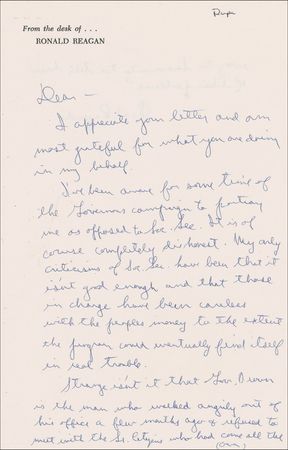 Dupe
From the desk of . . .
RONALD REAGAN
Dear —
I appreciate your letter and am
most grateful for what you are doing
in my behalf.
I've been aware for some time of
the Governors campaign to portray
me as opposed to Soc. Sec. It is of
course completely dishonest. My only
criticisms of Soc. Sec. have been that it
isn't good enough and that those
in charge have been careless
with the peoples money to the extent
the program could eventually find itself
in real trouble.
Strange isn't it that Gov. Brown
is the man who walked angrily out of
his office a few months ago & refused to
meet with the Sr. Citizens who had come all the
(over)